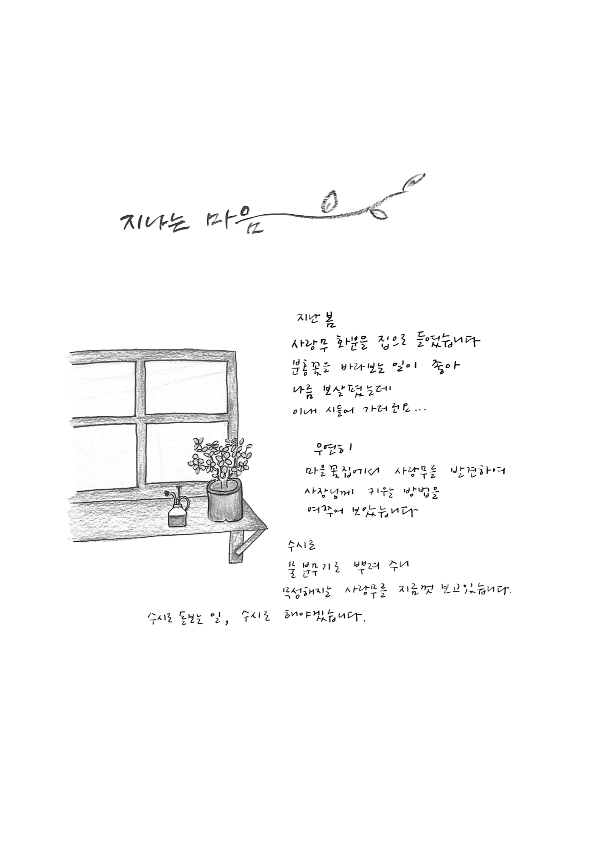 지나는 마음
지난 봄
사랑무 화분을 집으로 들였습니다
분홍꽃을 바라보는 일이 좋아
나름 보살폈는데
이내 시들어 가더군요...
우연히
마을꽃집에서 사랑무를 발견하여
사장님께 키울 방법을
여쭈어 보았습니다
수시로
물 분무기로 뿌려 주니
무성해진 사랑무를 지금껏 보고있습니다.
수시로 돌보는 일, 수시로 해야겠습니다.